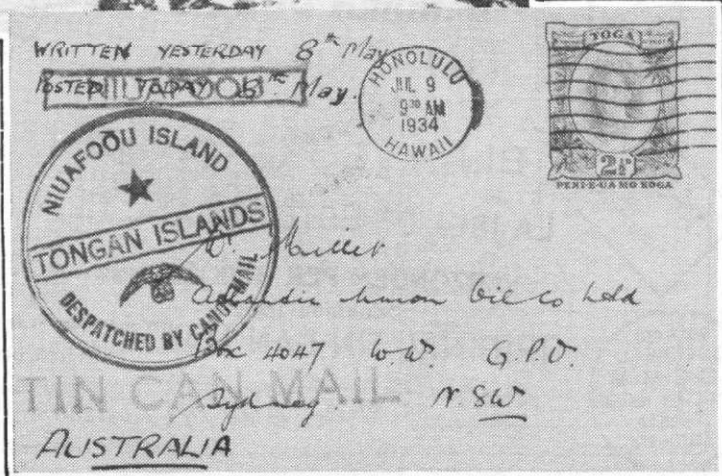 WRITTEN YESTERDAY 8TH May
POSTED TODAY 8TH May.
NIUAFOOU
HONOLULU
JUL 9
9 30 AM
1934
HAWAII
TOGA
2½
PENI·E·UA MO KOGA
NIUAFOOU ISLAND
TONGAN ISLANDS
DESPATCHED BY CANOE MAIL
Miller
Atlantic Union Oil Co Ltd
Box 4047 W.W. G.P.O.
Sydney. N.SW
TIN CAN MAIL
AUSTRALIA